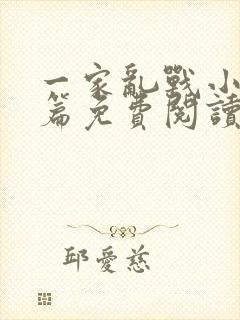 一家亂戰小
篇免費閱讀
邱愛慈